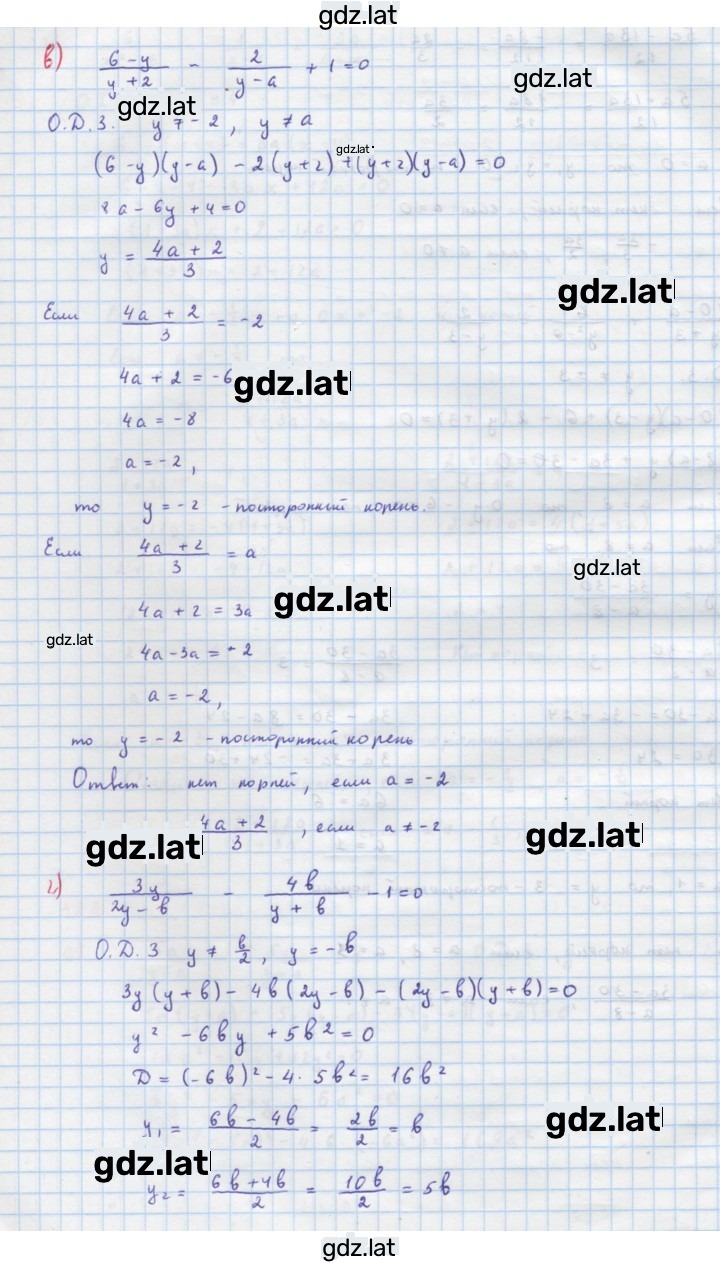 gdz.lat
в) (6 - y)/(y + 2) - 2/(y - a) + 1 = 0
gdz.lat
gdz.lat
О.Д.З. y ≠ -2, y ≠ a
gdz.lat
(6 - y)(y - a) - 2(y + 2) + (y + 2)(y - a) = 0
8a - 6y + 4 = 0
y = (4a + 2)/3
gdz.lat
Если (4a + 2)/3 = -2
4a + 2 = -6
gdz.lat
4a = -8
a = -2,
то y = -2 - посторонний корень.
Если (4a + 2)/3 = a
gdz.lat
4a + 2 = 3a
gdz.lat
gdz.lat
4a - 3a = -2
a = -2,
то y = -2 - посторонний корень
Ответ: нет корней, если a = -2
(4a + 2)/3, если a ≠ -2
gdz.lat
gdz.lat
г) 3y/(2y - b) - 4b/(y + b) - 1 = 0
О.Д.З y ≠ b/2, y = -b
3y(y + b) - 4b(2y - b) - (2y - b)(y + b) = 0
y² - 6by + 5b² = 0
D = (-6b)² - 4 · 5b² = 16b²
y₁ = (6b - 4b)/2 = 2b/2 = b
gdz.lat
gdz.lat
y₂ = (6b + 4b)/2 = 10b/2 = 5b
gdz.lat